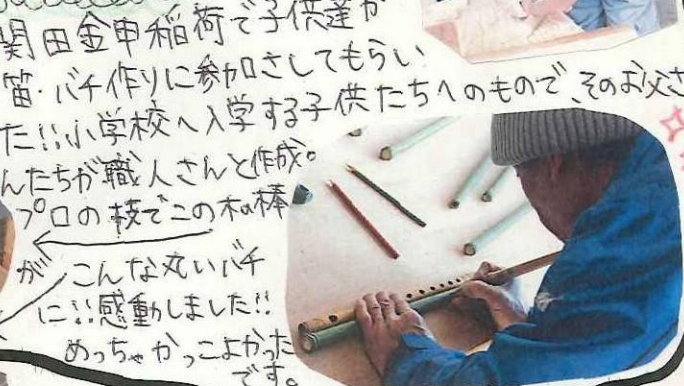 関田金申稲荷で子供達が
笛・バチ作りに参加させてもらい
た!!小学校へ入学する子供たちへのもので、そのお父さ
んたちが職人さんと作成。
プロの技でこの木の棒
が こんな丸いバチ
に!!感動しました!!
めっちゃかっこよかった
です。